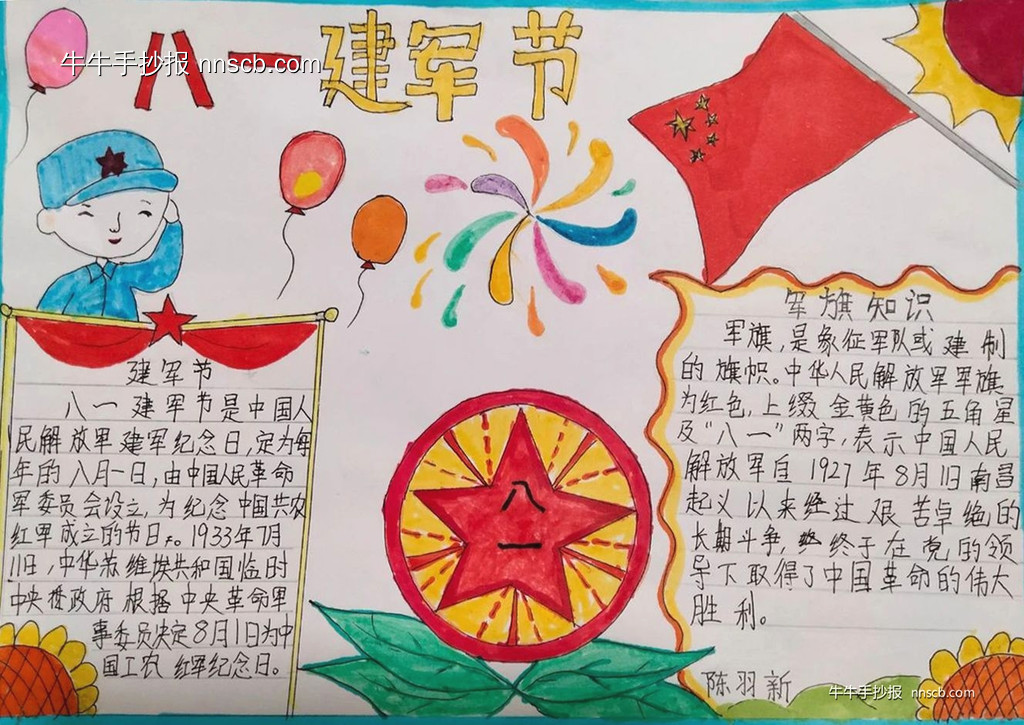 八一建军节
牛牛手抄报 nnscb.com
建军节
八一建军节是中国人
民解放军建军纪念日,定为每
年的八月一日,由中国人民革命
军委员会设立,为纪念中国共农
红军成立的节日。1933年7月
11日,中华苏维埃共和国临时
中央政府根据中央革命军
事委员决定8月1日为中
国工农红军纪念日。
八
一
军旗知识
军旗,是象征军队或建制
的旗帜。中华人民解放军军旗
为红色,上缀金黄色的五角星
及“八一”两字,表示中国人民
解放军自1927年8月1日南昌
起义以来经过艰苦卓绝的
长期斗争,终于在党的领
导下取得了中国革命的伟大
胜利。
陈羽新
牛牛手抄报 nnscb.com